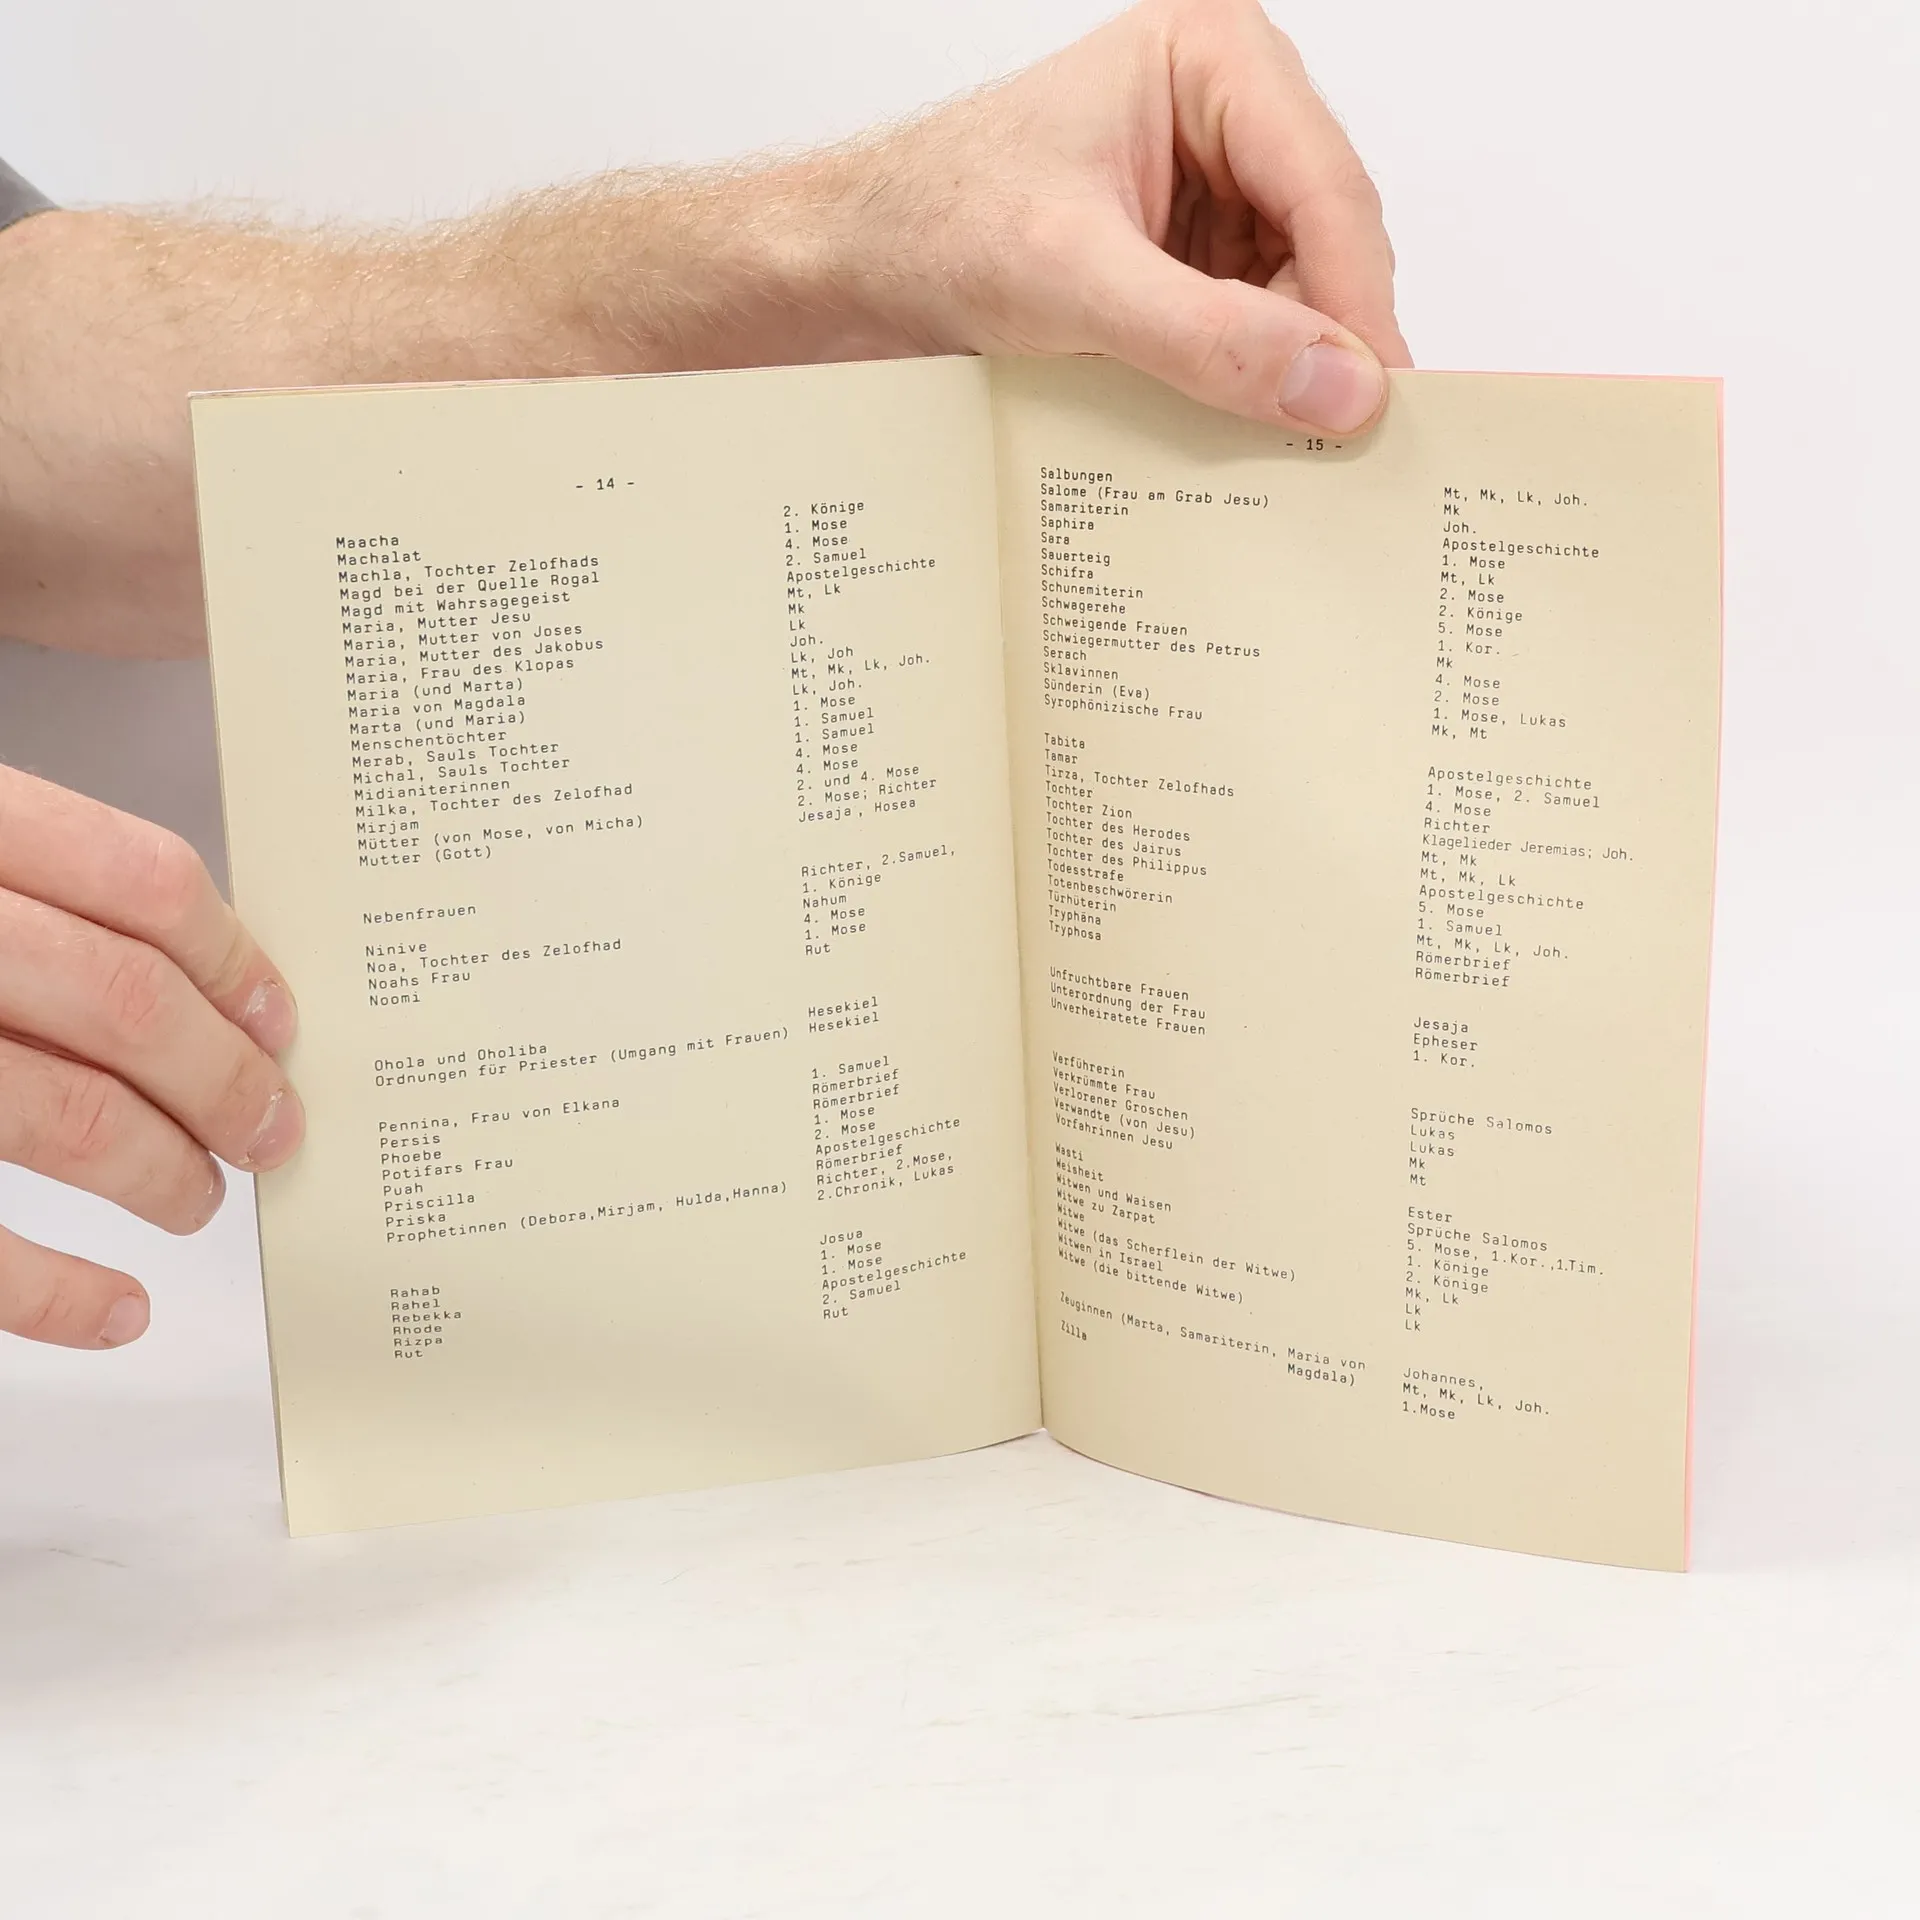 - 14 -
Maacha 2. Könige
Machalat 1. Mose
Machla, Tochter Zelofhads 4. Mose
Magd bei der Quelle Rogal 2. Samuel
Magd mit Wahrsagegeist Apostelgeschichte
Maria, Mutter Jesu Mt, Lk
Maria, Mutter von Joses Mk
Maria, Mutter des Jakobus Lk
Maria, Frau des Klopas Joh.
Maria (und Marta) Lk, Joh
Maria von Magdala Mt, Mk, Lk, Joh.
Marta (und Maria) Lk, Joh.
Menschentöchter 1. Mose
Merab, Sauls Tochter 1. Samuel
Michal, Sauls Tochter 1. Samuel
Midianiterinnen 4. Mose
Milka, Tochter des Zelofhad 4. Mose
Mirjam 2. und 4. Mose
Mütter (von Mose, von Micha) 2. Mose; Richter
Mutter (Gott) Jesaja, Hosea
Nebenfrauen Richter, 2.Samuel,
1. Könige
Ninive Nahum
Noa, Tochter des Zelofhad 4. Mose
Noahs Frau 1. Mose
Noomi Rut
Ohola und Oholiba Hesekiel
Ordnungen für Priester (Umgang mit Frauen) Hesekiel
Pennina, Frau von Elkana 1. Samuel
Persis Römerbrief
Phoebe Römerbrief
Potifars Frau 1. Mose
Puah 2. Mose
Priscilla Apostelgeschichte
Priska Römerbrief
Prophetinnen (Debora,Mirjam, Hulda,Hanna) Richter, 2.Mose,
2.Chronik, Lukas
Rahab Josua
Rahel 1. Mose
Rebekka 1. Mose
Rhode Apostelgeschichte
Rizpa 2. Samuel
Rut Rut
- 15 -
Salbungen Mt, Mk, Lk, Joh.
Salome (Frau am Grab Jesu) Mk
Samariterin Joh.
Saphira Apostelgeschichte
Sara 1. Mose
Sauerteig Mt, Lk
Schifra 2. Mose
Schunemiterin 2. Könige
Schwagerehe 5. Mose
Schweigende Frauen 1. Kor.
Schwiegermutter des Petrus Mk
Serach 4. Mose
Sklavinnen 2. Mose
Sünderin (Eva) 1. Mose, Lukas
Syrophönizische Frau Mk, Mt
Tabita Apostelgeschichte
Tamar 1. Mose, 2. Samuel
Tirza, Tochter Zelofhads 4. Mose
Tochter Richter
Tochter Zion Klagelieder Jeremias; Joh.
Tochter des Herodes Mt, Mk
Tochter des Jairus Mt, Mk, Lk
Tochter des Philippus Apostelgeschichte
Todesstrafe 5. Mose
Totenbeschwörerin 1. Samuel
Türhüterin Mt, Mk, Lk, Joh.
Tryphäna Römerbrief
Tryphosa Römerbrief
Unfruchtbare Frauen Jesaja
Unterordnung der Frau Epheser
Unverheiratete Frauen 1. Kor.
Verführerin Sprüche Salomos
Verkrümmte Frau Lukas
Verlorener Groschen Lukas
Verwandte (von Jesu) Mk
Vorfahrinnen Jesu Mt
Wasti Ester
Weisheit Sprüche Salomos
Witwen und Waisen 5. Mose, 1.Kor.,1.Tim.
Witwe zu Zarpat 1. Könige
Witwe 2. Könige
Witwe (das Scherflein der Witwe) Mk, Lk
Witwen in Israel Lk
Witwe (die bittende Witwe) Lk
Zeuginnen (Marta, Samariterin, Maria von Johannes,
Magdala) Mt, Mk, Lk, Joh.
Zilla 1.Mose